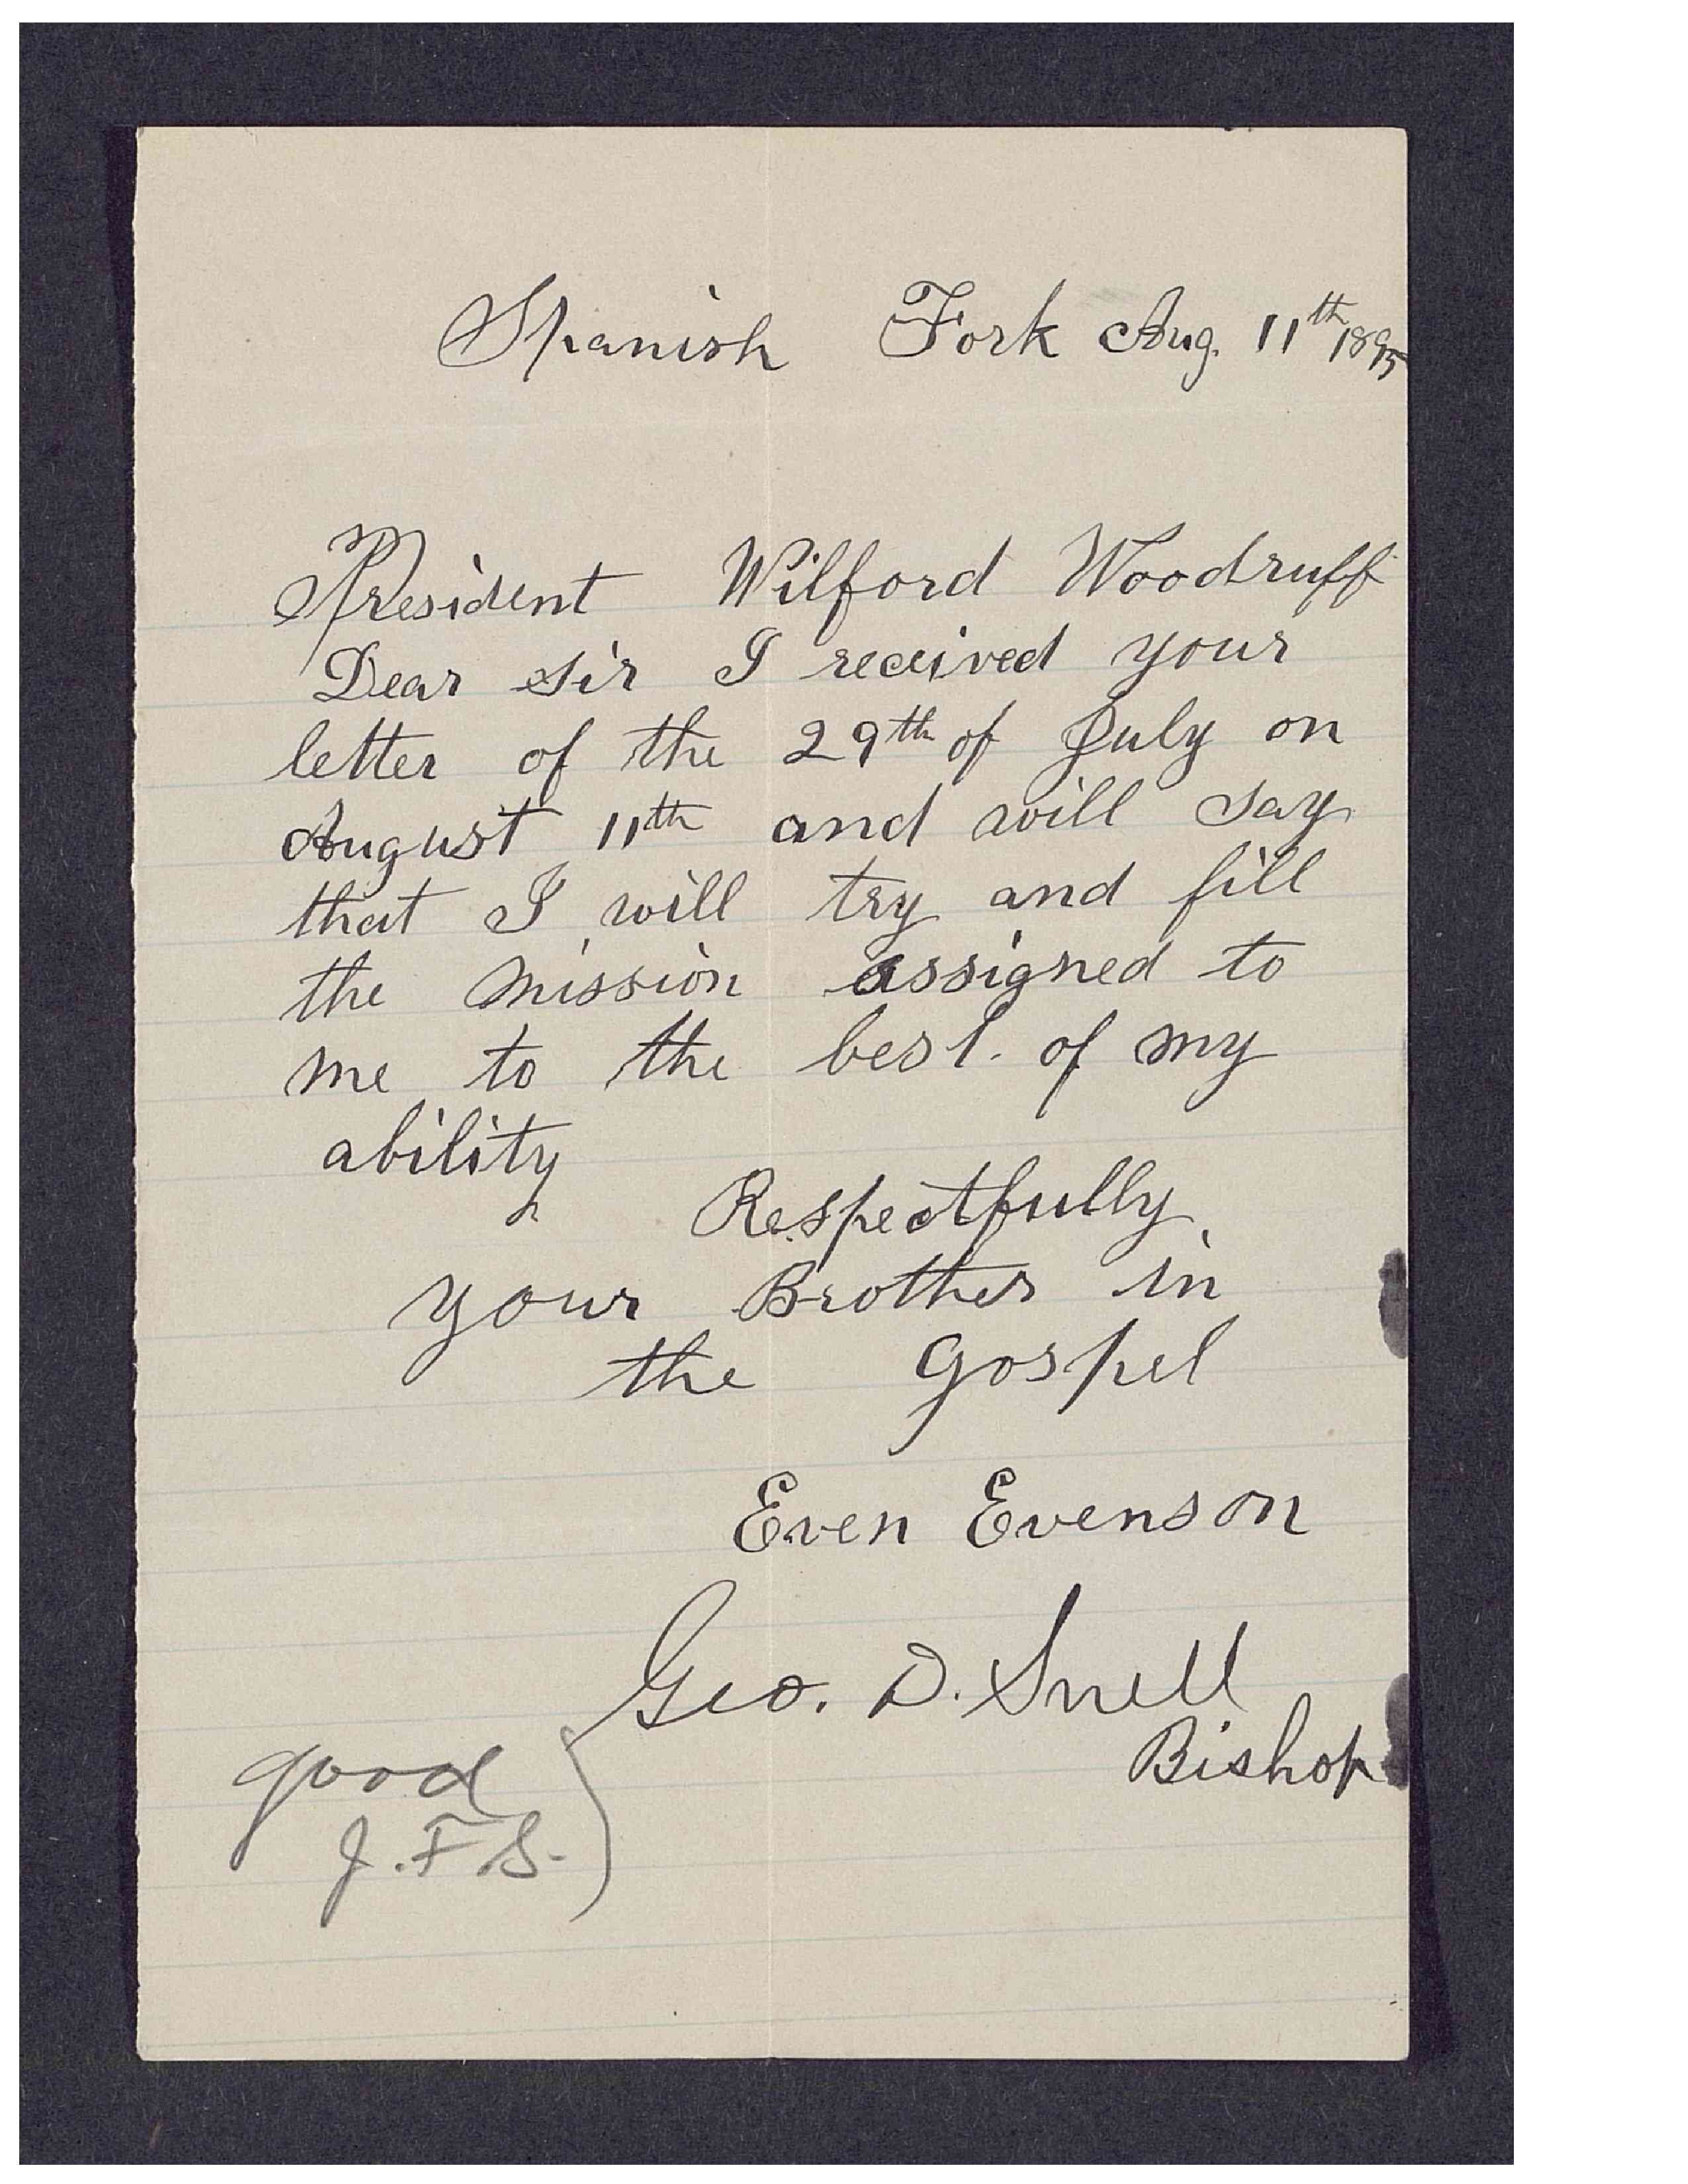 Spanish Fork Aug. 11th 1895
President Wilford Woodruff
Dear sir I received your
letter of the 29th of July on
August 11th and will say
that I will try and fill
the mission assigned to
me to the best. of my
ability
Respectfully
your Brother in
the Gospel
Even Evenson
Geo. D. Snell
Bishop
good
J.F.S.